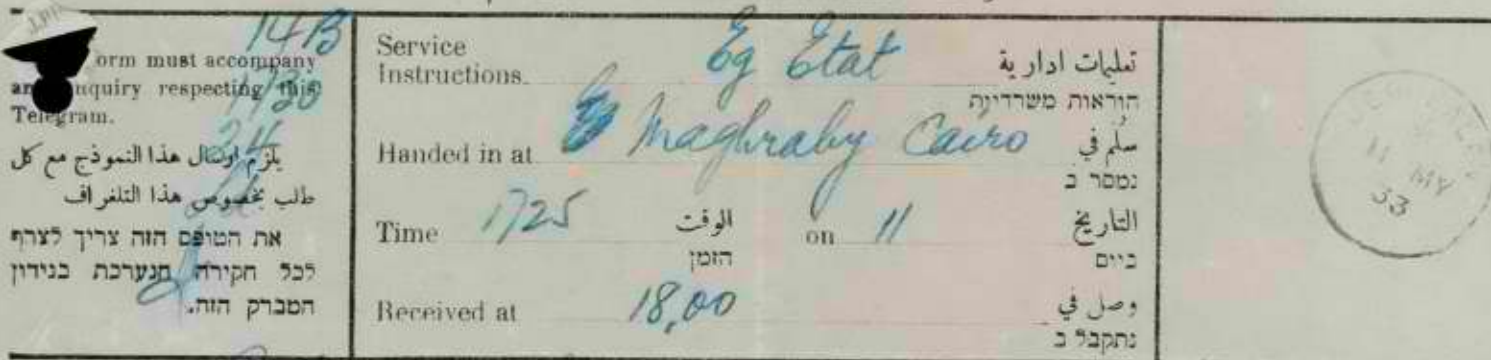 14B
orm must accompany
any inquiry respecting this
Telegram.
1730
24
يلزم ارسال هذا النموذج مع كل
طلب بخصوص هذا التلغراف
את הטופס הזה צריך לצרף
לכל חקירה הנערכת בנידון
המברק הזה.
Service
Instructions
Eg Etat
تعليمات ادارية
הוראות משרדיות
Handed in at
Maghraby Cairo
سلم في
נמסר ב
Time
1725
الوقت
הזמן
on
11
التاريخ
ביום
Received at
18,00
وصل في
נתקבל ב
11 MY
33